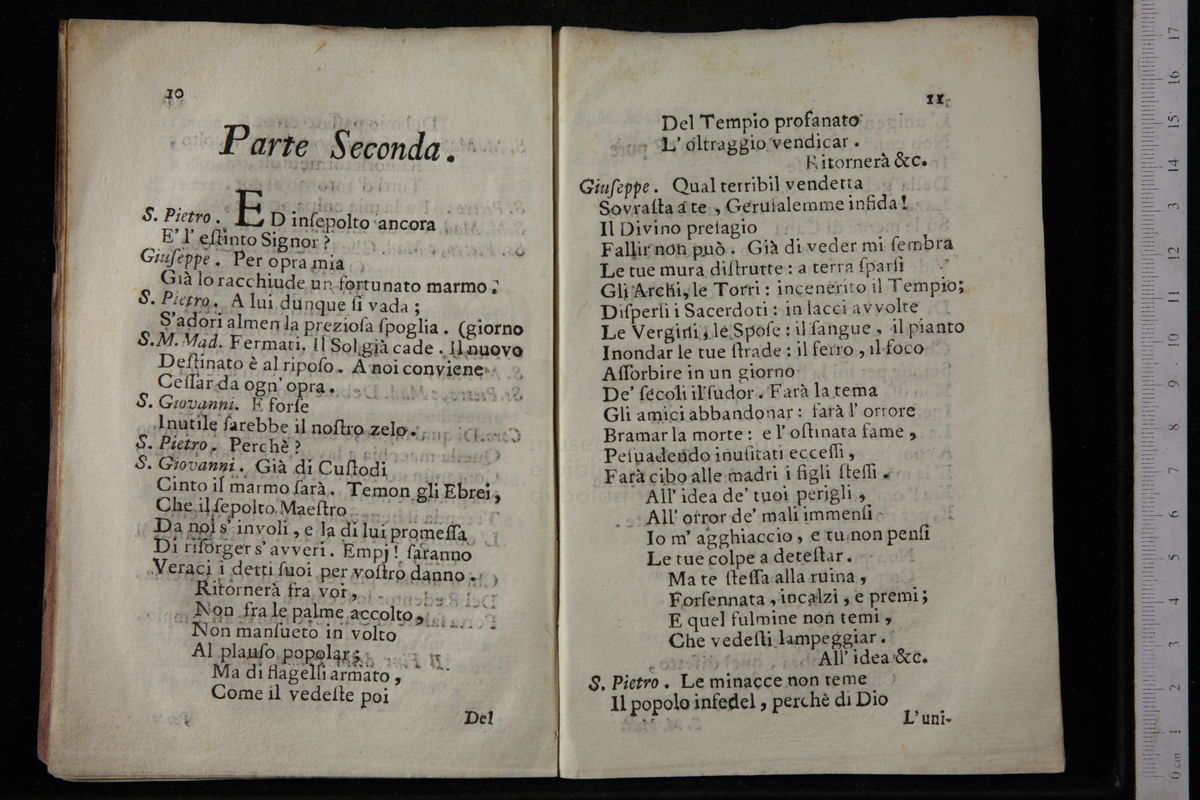 10
Parte Seconda.
S. Pietro. ED inſepolto ancora
E' l' eſtinto Signor?
Giuſeppe. Per opra mia
Già lo racchiude un fortunato marmo.
S. Pietro. A lui dunque ſi vada;
S'adori almen la prezioſa ſpoglia. (giorno
S.M. Mad. Fermati. il Sol già cade. il nuovo
Deſtinato è al ripoſo. A noi conviene
Ceſſar da ogn' opra.
S. Giovanni. E forſe
Inutile ſarebbe il noſtro zelo.
S. Pietro. Perchè?
S. Giovanni. Già di Cuſtodi
Cinto il marmo ſarà. Temon gli Ebrei,
Che il ſepolto Maeſtro
Da noi s' involi, e la di lui promeſſa
Di riſorger s' avveri. Empj! ſaranno
Veraci i detti ſuoi per voſtro danno.
Ritornerà fra voi,
Non fra le palme accolto,
Non manſueto in volto
Al plauſo popolar;
Ma di flagelli armato,
Come il vedeſte poi
Del
11
Del Tempio profanato
L' oltraggio vendicar.
Ritornerà &c.
Giuſeppe. Qual terribil vendetta
Sovraſta a te, Geruſalemme infida!
Il Divino preſagio
Fallir non può. Già di veder mi ſembra
Le tue mura diſtrutte: a terra ſparſi
Gli Archi, le Torri: incenerito il Tempio;
Diſperſi i Sacerdoti: in lacci avvolte
Le Vergini, le Spoſe: il ſangue, il pianto
Inondar le tue ſtrade: il ferro, il foco
Aſſorbire in un giorno
De' ſecoli il ſudor. Farà la tema
Gli amici abbandonar: farà l' orrore
Bramar la morte: e l' oſtinata fame,
Peſuadendo inuſitati ecceſſi,
Farà cibo alle madri i figli ſteſſi.
All' idea de' tuoi perigli,
All' orror de' mali immenſi
Io m' agghiaccio, e tu non penſi
Le tue colpe a deteſtar.
Ma te ſteſſa alla ruina,
Forſennata, incalzi, e premi;
E quel fulmine non temi,
Che vedeſti lampeggiar.
All' idea &c.
S. Pietro. Le minacce non teme
Il popolo infedel, perchè di Dio
L' uni-
17
16
15
14
13
12
11
10
9
8
7
6
5
4
3
2
1
0 cm